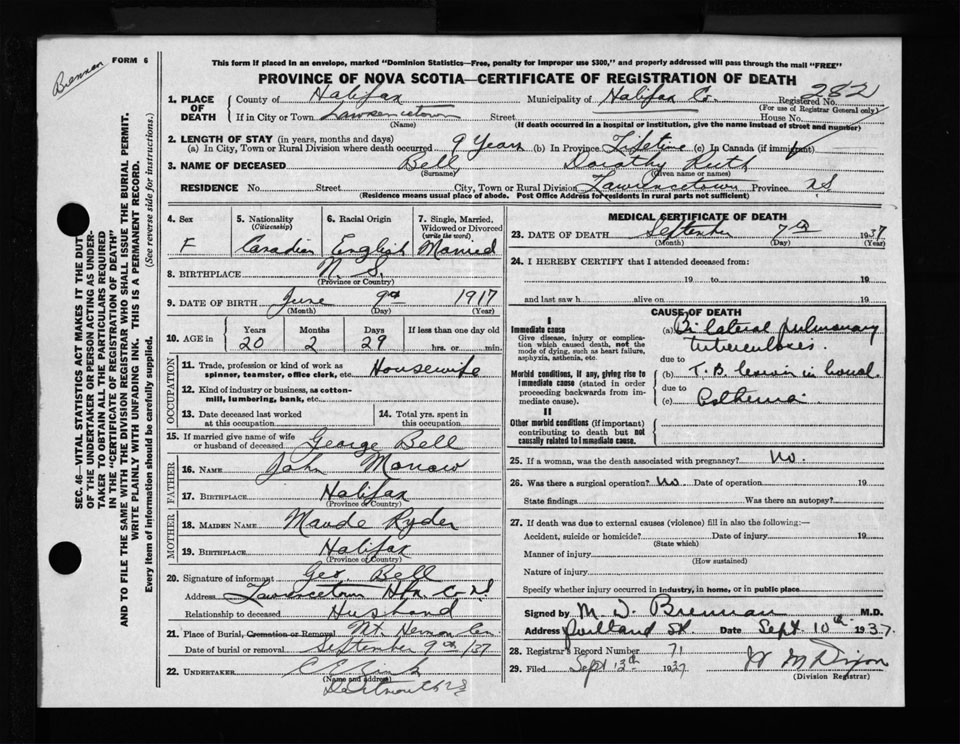 Brennan
FORM 6
This form if placed in an envelope, marked "Dominion Statistics—Free, penalty for improper use $300," and properly addressed will pass through the mail "FREE"
PROVINCE OF NOVA SCOTIA—CERTIFICATE OF REGISTRATION OF DEATH
282
1. PLACE OF DEATH County of Halifax Municipality of Halifax Co. Registered No.
(For use of Registrar General only)
If in City or Town Lawrencetown Street House No.
(Name) (If death occurred in a hospital or institution, give the name instead of street and number)
2. LENGTH OF STAY (in years, months and days)
(a) In City, Town or Rural Division where death occurred 9 Years (b) In Province Lifetime (c) In Canada (if immigrant)
3. NAME OF DECEASED Bell Dorothy Ruth
(Surname) (Given name or names)
RESIDENCE No. Street City, Town or Rural Division Lawrencetown Province NS
(Residence means usual place of abode. Post Office Address for residents in rural parts not sufficient)
4. Sex 5. Nationality (Citizenship) 6. Racial Origin 7. Single, Married, Widowed or Divorced (write the word)
F Canadian English Married
8. BIRTHPLACE N. S.
(Province or Country)
9. DATE OF BIRTH June 9th 1917
(Month) (Day) (Year)
10. AGE in Years Months Days If less than one day old
20 2 29 hrs. or min.
OCCUPATION
11. Trade, profession or kind of work as spinner, teamster, office clerk, etc. Housewife
12. Kind of industry or business, as cotton-mill, lumbering, bank, etc.
13. Date deceased last worked at this occupation
14. Total yrs. spent in this occupation
15. If married give name of wife or husband of deceased George Bell
FATHER
16. NAME John
17. BIRTHPLACE Halifax
(Province or Country)
MOTHER
18. MAIDEN NAME Maude Ryder
19. BIRTHPLACE Halifax
(Province or Country)
20. Signature of informant Geo. Bell
Address Lawrencetown Hfx Co
Relationship to deceased Husband
21. Place of Burial, Cremation or Removal Mt. Hermon Cem
Date of burial or removal September 9th/37
22. UNDERTAKER
(Name and address)
Dartmouth NS
MEDICAL CERTIFICATE OF DEATH
23. DATE OF DEATH September 7th 1937
(Month) (Day) (Year)
24. I HEREBY CERTIFY that I attended deceased from:
19 to 19
and last saw h alive on 19
CAUSE OF DEATH
I
Immediate cause
Give disease, injury or complication which caused death, not the mode of dying, such as heart failure, asphyxia, asthenia, etc.
(a) Bilateral pulmonary tuberculoses.
due to
Morbid conditions, if any, giving rise to immediate cause (stated in order proceeding backwards from immediate cause).
(b) T.B. in bowel.
due to
(c)
II
Other morbid conditions (if important) contributing to death but not causally related to immediate cause.
25. If a woman, was the death associated with pregnancy? No.
26. Was there a surgical operation? No Date of operation 19
State findings Was there an autopsy?
27. If death was due to external causes (violence) fill in also the following:—
Accident, suicide or homicide? Date of injury 19
(State which)
Manner of injury
(How sustained)
Nature of injury
Specify whether injury occurred in industry, in home, or in public place
Signed by M. D. Brennan M.D.
Address Portland St. Date Sept. 10th 1937.
28. Registrar's Record Number 71
29. Filed Sept 13th 1937 W M Dixon
(Division Registrar)
SEC. 46—VITAL STATISTICS ACT MAKES IT THE DUTY
OF THE UNDERTAKER OR PERSON ACTING AS UNDER-
TAKER TO OBTAIN ALL THE PARTICULARS REQUIRED
IN THE "CERTIFICATE OF REGISTRATION OF DEATH"
AND TO FILE THE SAME WITH THE DIVISION REGISTRAR WHO SHALL ISSUE THE BURIAL PERMIT.
WRITE PLAINLY WITH UNFADING INK. THIS IS A PERMANENT RECORD.
Every item of information should be carefully supplied. (See reverse side for instructions.)